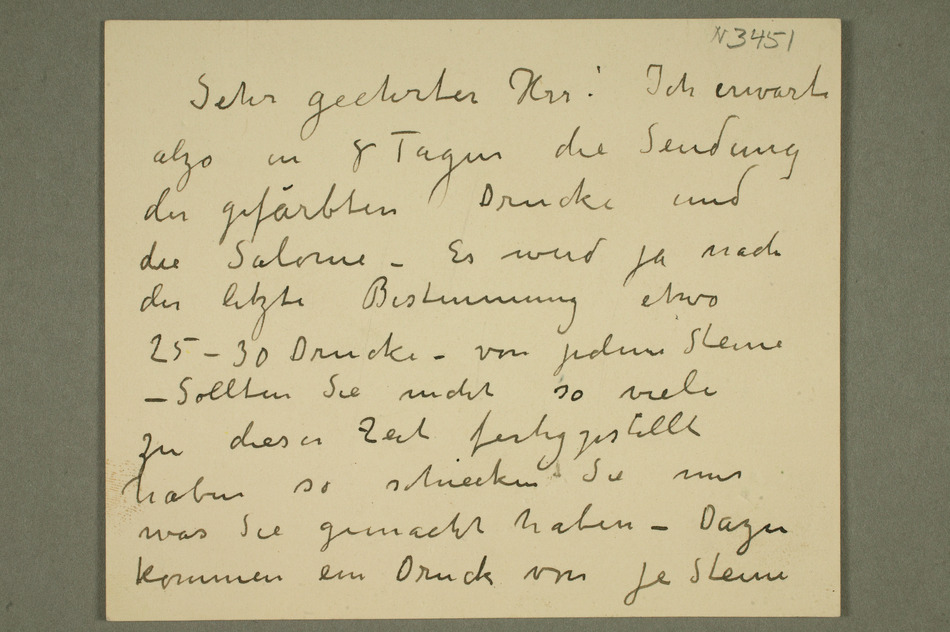 N3451
Sehr geehrter Herr! Ich erwarte
also in 8 Tagen die Sendung
der gefärbten Drucke und
die Salome – Es wird ja nach
der letzte Bestimmung etwo
25 – 30 Drucke – von jedem Steine
– Sollten Sie nicht so viele
zu dieser Zeit fertiggestellt
haben so schiecken Sie mir
was Sie gemacht haben – Dazu
kommen ein Druck von je Steine